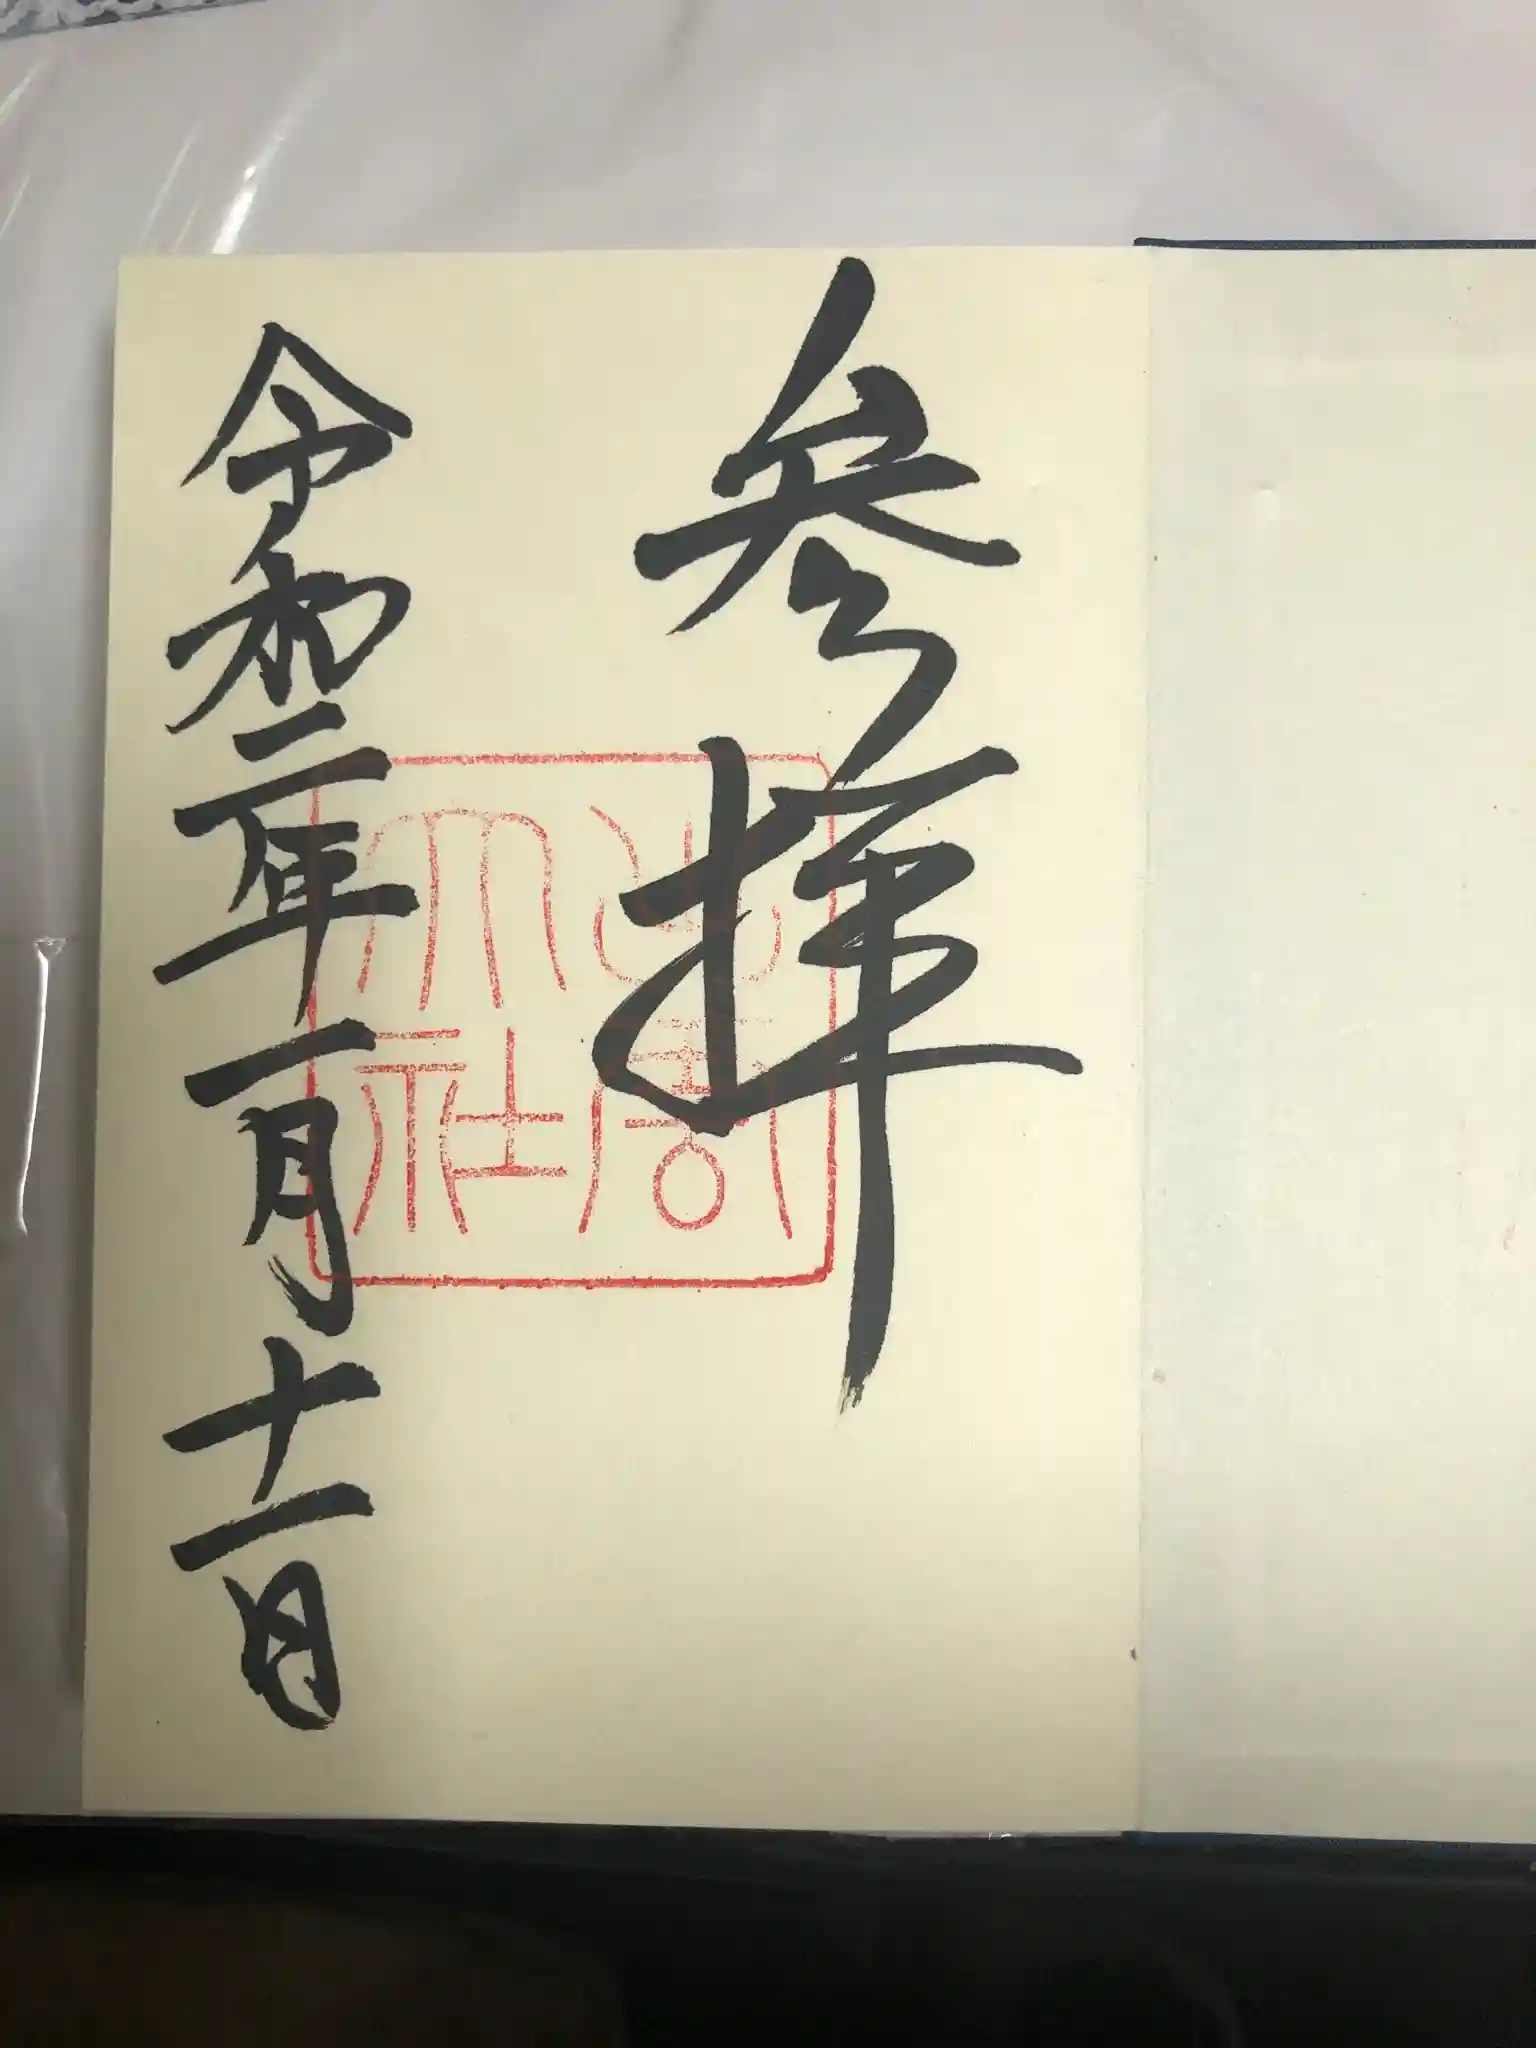 参拝
出雲
大社
令和二年一月十一日